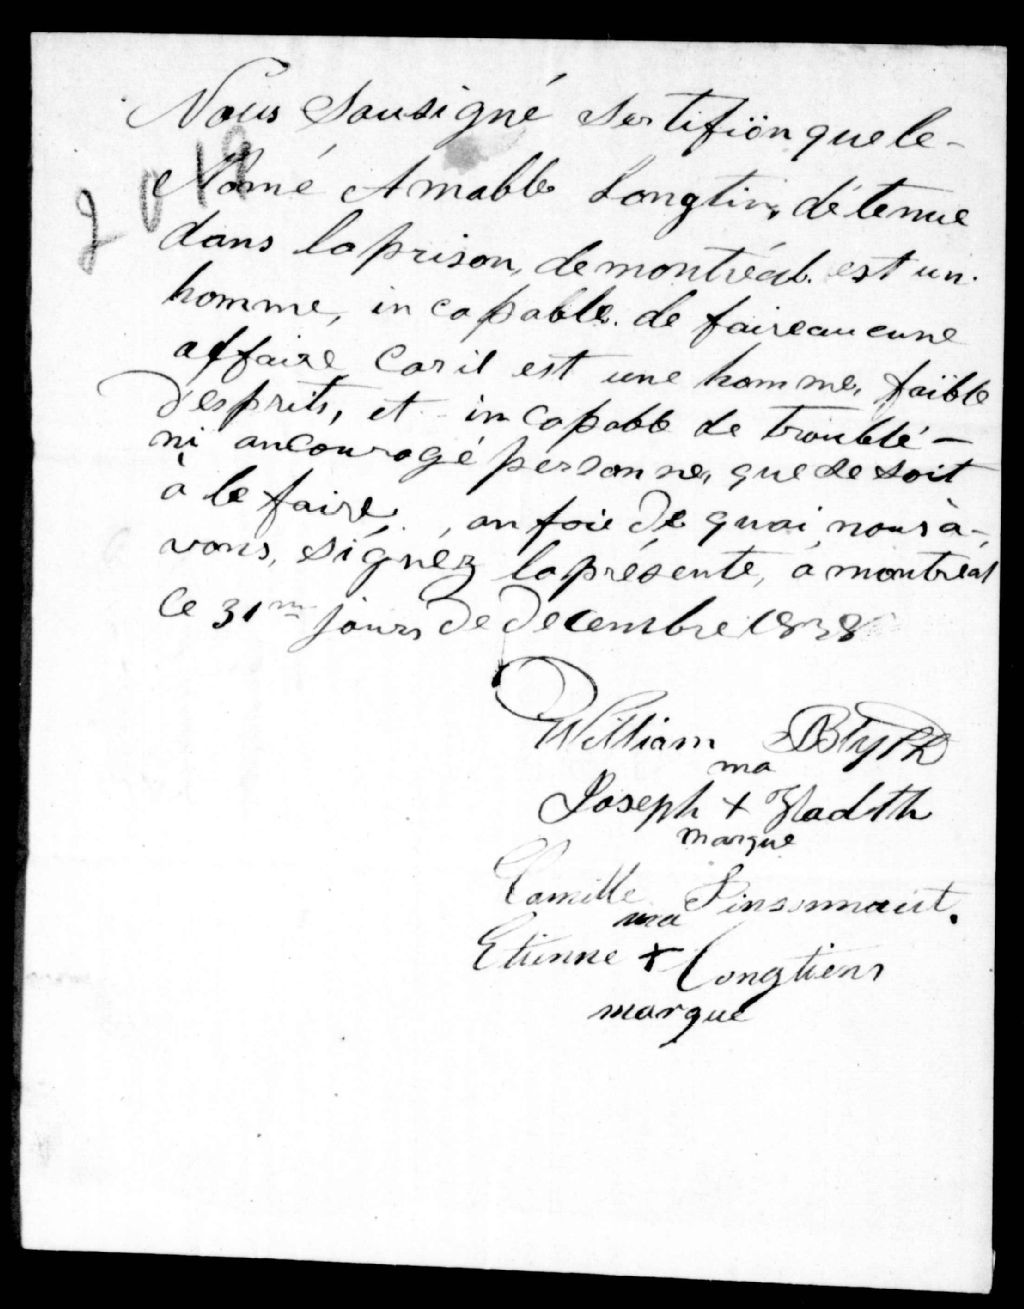 Nous Sousigné Sertifiön que le-
2019
Nomé Amable Longtin, détenue
dans la prison, de montréal. est un.
homme, incapable. de faire aucune
affaire Car il est une homme, faible
d'esprits, et incapable de troublé-
ni ancouragé personne, que se soit
à le faire, an foie de quoi, nous à-
vons, signéz la présente, à montreal
Ce 31me jours de Decembre 1838
William Blyth
ma
Joseph +
marque
Camille Pinsonnault.
ma
Etienne + Longtiens
marque